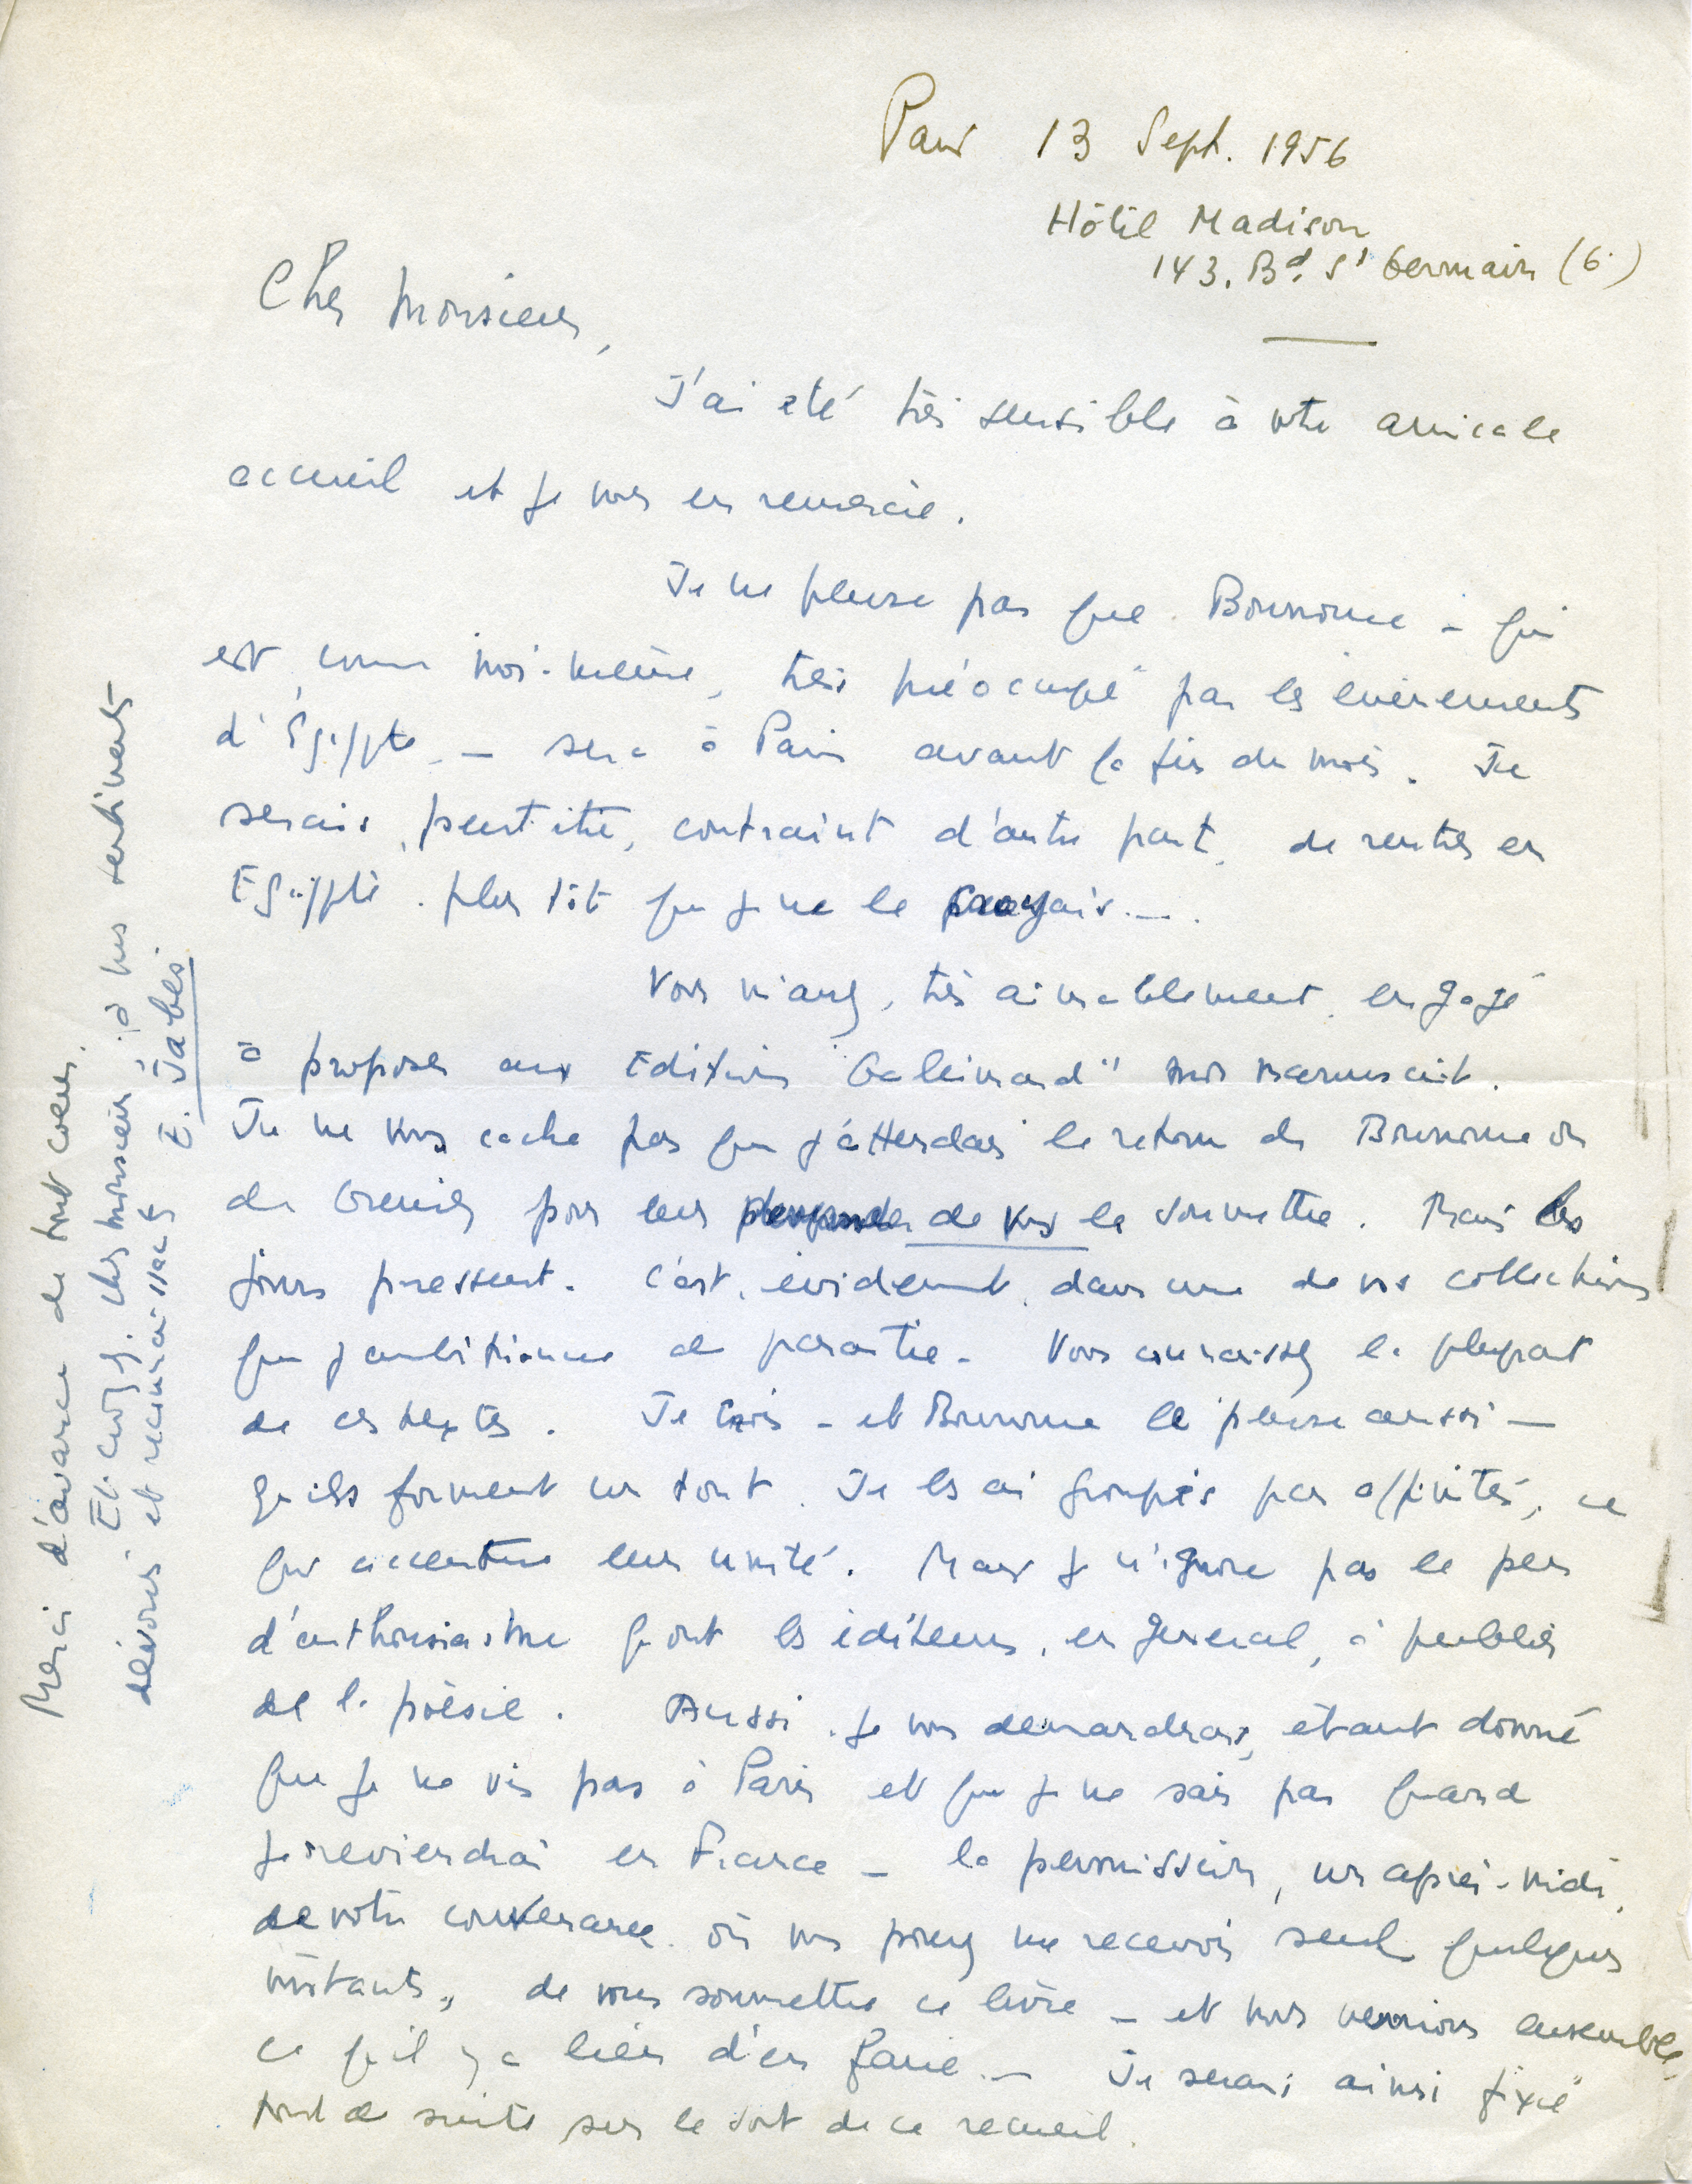 Paris 13 Sept. 1956
Hôtel Madison
143. Bd. St Germain (6.)
Cher Monsieur,
J'ai été très sensible à votre amicale
accueil et je vous en remercie.
Je ne pense pas que Bounoure – qui
est, comme moi-même, très préoccupé par les événements
d'Égypte – sera à Paris avant la fin du mois. Je
serais, peut-être, contraint d'autre part, de rentrer en
Egypte plus tôt que je ne le croyais. –
Vous m'avez, très aimablement, engagé
à proposer aux Editions "Gallimard" mon manuscrit.
Je ne vous cache pas que j'attendais le retour de Bounoure ou
de Grenier pour leur demander de vous le soumettre. Mais les
jours pressent. C'est, évidemment, dans une de vos collections
que j'ambitionne de paraître. Vous connaissez la plupart
de ces textes. Je crois – et Bounoure le pense aussi –
qu'ils forment un tout. Je les ai groupés par affinités, ce
qui accentue leur unité. Mais je n'ignore pas le peu
d'enthousiasme qu'ont les éditeurs, en général, à publier
de la poésie. Aussi, je vous demanderais, étant donné
que je ne vis pas à Paris et que je ne sais pas quand
je reviendrai en France – la permission, un après-midi,
de votre convenance où vous pourrez me recevoir seul quelques
instants, de vous soumettre ce livre – et nous verrions ensemble
ce qu'il y a lieu d'en faire. – Je serai ainsi fixé
tout de suite sur le sort de ce recueil.
Merci d'avance de tout coeur.
Et croyez, cher Monsieur, à mes sentiments
dévoués et reconnaissants
E. Jabès